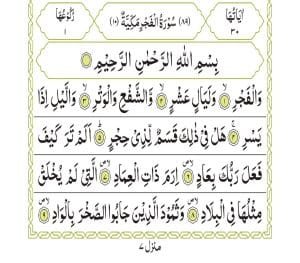 اٰيَاتُهَا ٣٠ (٨٩) سُوْرَةُ الْفَجْرِ مَكِّيَّةٌ (١٠) رُكُوْعُهَا ١
بِسْمِ اللّٰهِ الرَّحْمٰنِ الرَّحِيْمِ
وَالْفَجْرِ ۙ﴿١﴾ وَلَيَالٍ عَشْرٍ ۙ﴿٢﴾ وَّالشَّفْعِ وَالْوَتْرِ ۙ﴿٣﴾ وَالَّيْلِ اِذَا
يَسْرِ ۚ﴿٤﴾ هَلْ فِيْ ذٰلِكَ قَسَمٌ لِّذِيْ حِجْرٍ ؕ﴿٥﴾ اَلَمْ تَرَ كَيْفَ
فَعَلَ رَبُّكَ بِعَادٍ ۪ۙ﴿٦﴾ اِرَمَ ذَاتِ الْعِمَادِ ۪ۙ﴿٧﴾ الَّتِيْ لَمْ يُخْلَقْ
مِثْلُهَا فِي الْبِلَادِ ۪ۙ﴿٨﴾ وَثَمُوْدَ الَّذِيْنَ جَابُوا الصَّخْرَ بِالْوَادِ ۪ۙ﴿٩﴾
منزل ٧